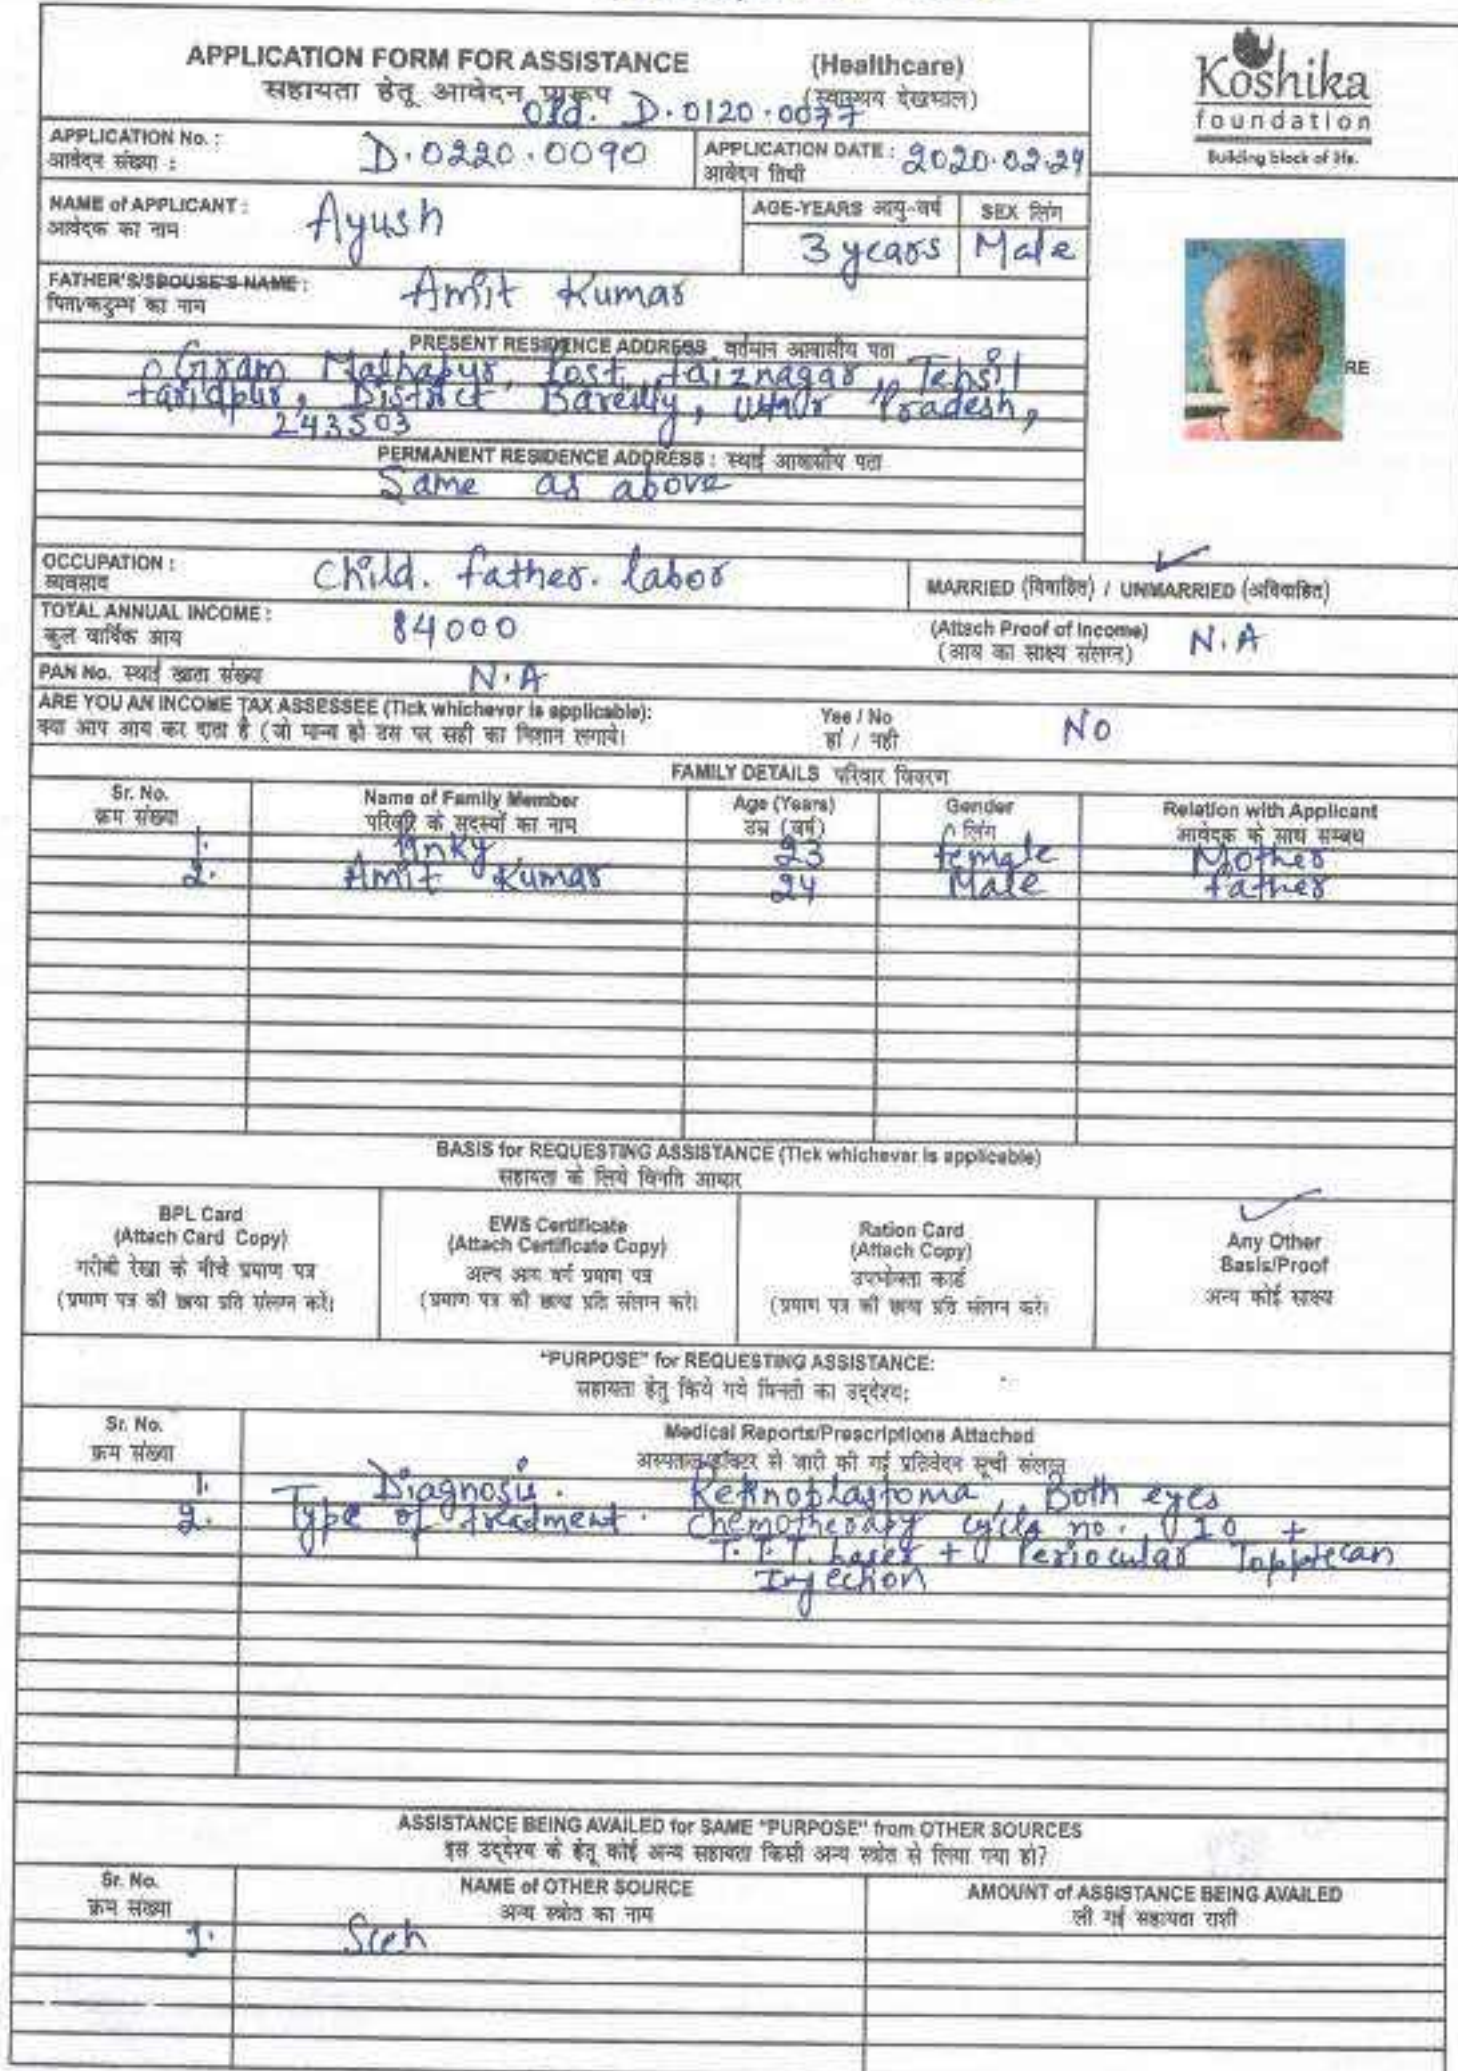 APPLICATION FORM FOR ASSISTANCE (Healthcare)
सहायता हेतू आवेदन प्रारूप (स्वास्थय देखभाल)
old. D.0120.0077
Koshika
foundation
Building block of life.
APPLICATION No. : D.0220.0090 APPLICATION DATE : 2020.02.29
आवेदन संख्या : आवेदन तिथी
NAME of APPLICANT : Ayush AGE-YEARS आयु-वर्ष SEX लिंग
आवेदक का नाम 3 years Male
FATHER'S/SPOUSE'S NAME : Amit Kumar
पिता/कटुम्भ का नाम
RE
PRESENT RESIDENCE ADDRESS वर्तमान आवासीय पता
Gram Post faiznagar, Tehsil
faridpur, District Bareilly, Uttar Pradesh,
243503
PERMANENT RESIDENCE ADDRESS : स्थाई आवासीय पता
Same as above
OCCUPATION : Child. father. labor MARRIED (विवाहित) / UNMARRIED (अविवाहित)
व्यवसाय
TOTAL ANNUAL INCOME : 84000 (Attach Proof of Income) N.A
कुल वार्षिक आय (आय का साक्ष्य संलग्न)
PAN No. स्थाई खाता संख्या N.A
ARE YOU AN INCOME TAX ASSESSEE (Tick whichever is applicable): Yes / No NO
क्या आप आय कर दाता है (जो मान्य हो उस पर सही का निशान लगाये। हां / नही
FAMILY DETAILS परिवार विवरण
Sr. No. Name of Family Member Age (Years) Gender Relation with Applicant
क्रम संख्या परिवार के सदस्यों का नाम उम्र (वर्ष) लिंग आवेदक के साथ सम्बध
1. Pinky 23 female Mother
2. Amit Kumar 24 Male father
BASIS for REQUESTING ASSISTANCE (Tick whichever is applicable)
सहायता के लिये विनति आधार
BPL Card
(Attach Card Copy)
गरीबी रेखा के नीचे प्रमाण पत्र
(प्रमाण पत्र की छाया प्रति संलग्न करें।
EWS Certificate
(Attach Certificate Copy)
अल्प आय वर्ग प्रमाण पत्र
(प्रमाण पत्र की छाया प्रति संलग्न करें।
Ration Card
(Attach Copy)
उपभोक्ता कार्ड
(प्रमाण पत्र की छाया प्रति संलग्न करें।
Any Other
Basis/Proof
अन्य कोई साक्ष्य
"PURPOSE" for REQUESTING ASSISTANCE:
सहायता हेतु किये गये विनती का उद्देश्य:
Sr. No. Medical Reports/Prescriptions Attached
क्रम संख्या अस्पताल/डॉक्टर से जारी की गई प्रतिवेदन सूची संलग्न
1. Diagnosis. Retinoblastoma, Both eyes
2. Type of treatment. Chemotherapy cycle no. 10 +
T.T.T. Laser + Periocular Topotecan
Injection
ASSISTANCE BEING AVAILED for SAME "PURPOSE" from OTHER SOURCES
इस उद्देश्य के हेतू कोई अन्य सहायता किसी अन्य स्त्रोत से लिया गया हो?
Sr. No. NAME of OTHER SOURCE AMOUNT of ASSISTANCE BEING AVAILED
क्रम संख्या अन्य स्त्रोत का नाम ली गई सहायता राशी
1. Sceh